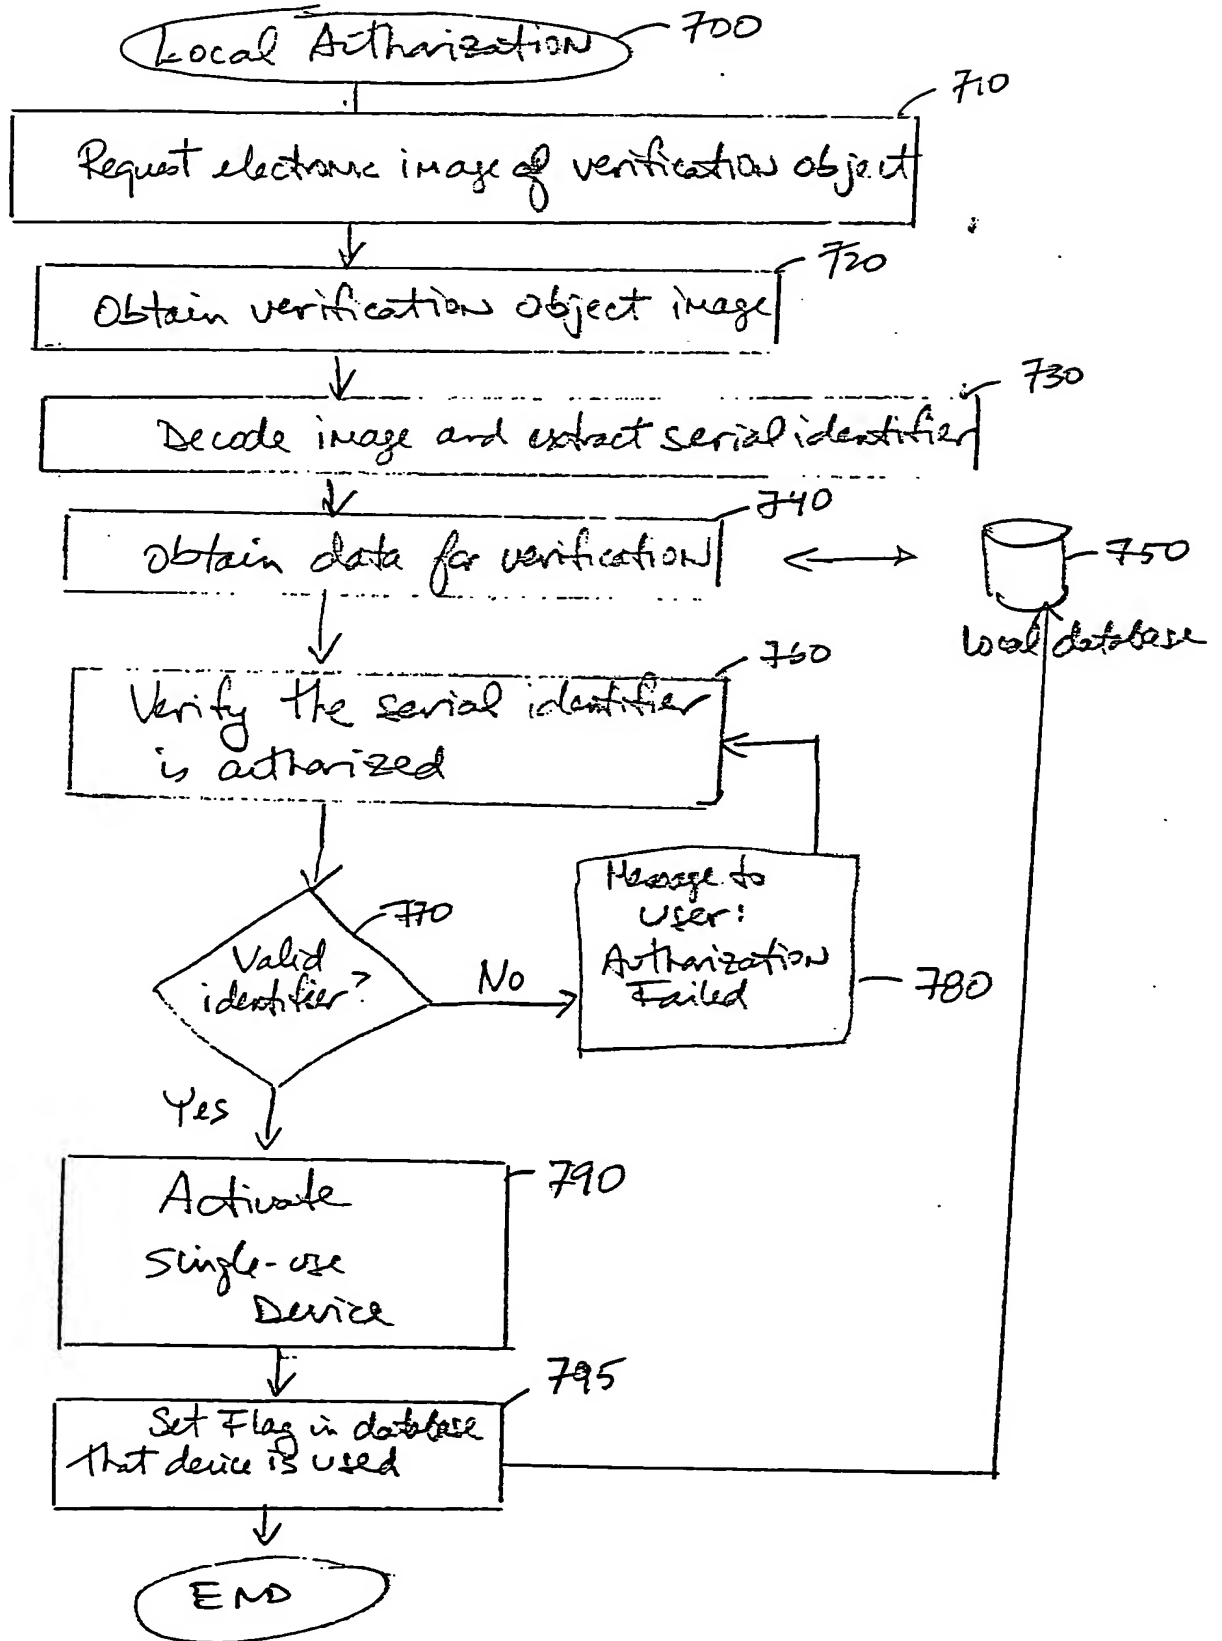 Local Authorization
700
710
Request electronic image of verification object
720
Obtain verification object image
730
Decode image and extract serial identifier
740
Obtain data for verification
750
local database
760
Verify the serial identifier
is authorized
770
Valid
identifier?
No
Message to
user:
Authorization
Failed
780
Yes
790
Activate
Single-use
Device
795
Set Flag in database
that device is used
END